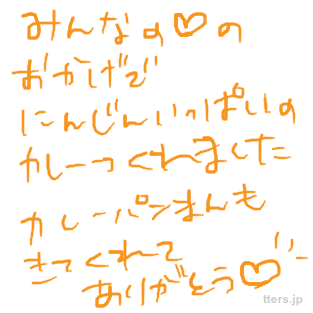 みんなの♡の
おかげで
にんじんいっぱいの
カレーつくれました
カレーパンまんも
きてくれて
ありがとう♡
tters.jp